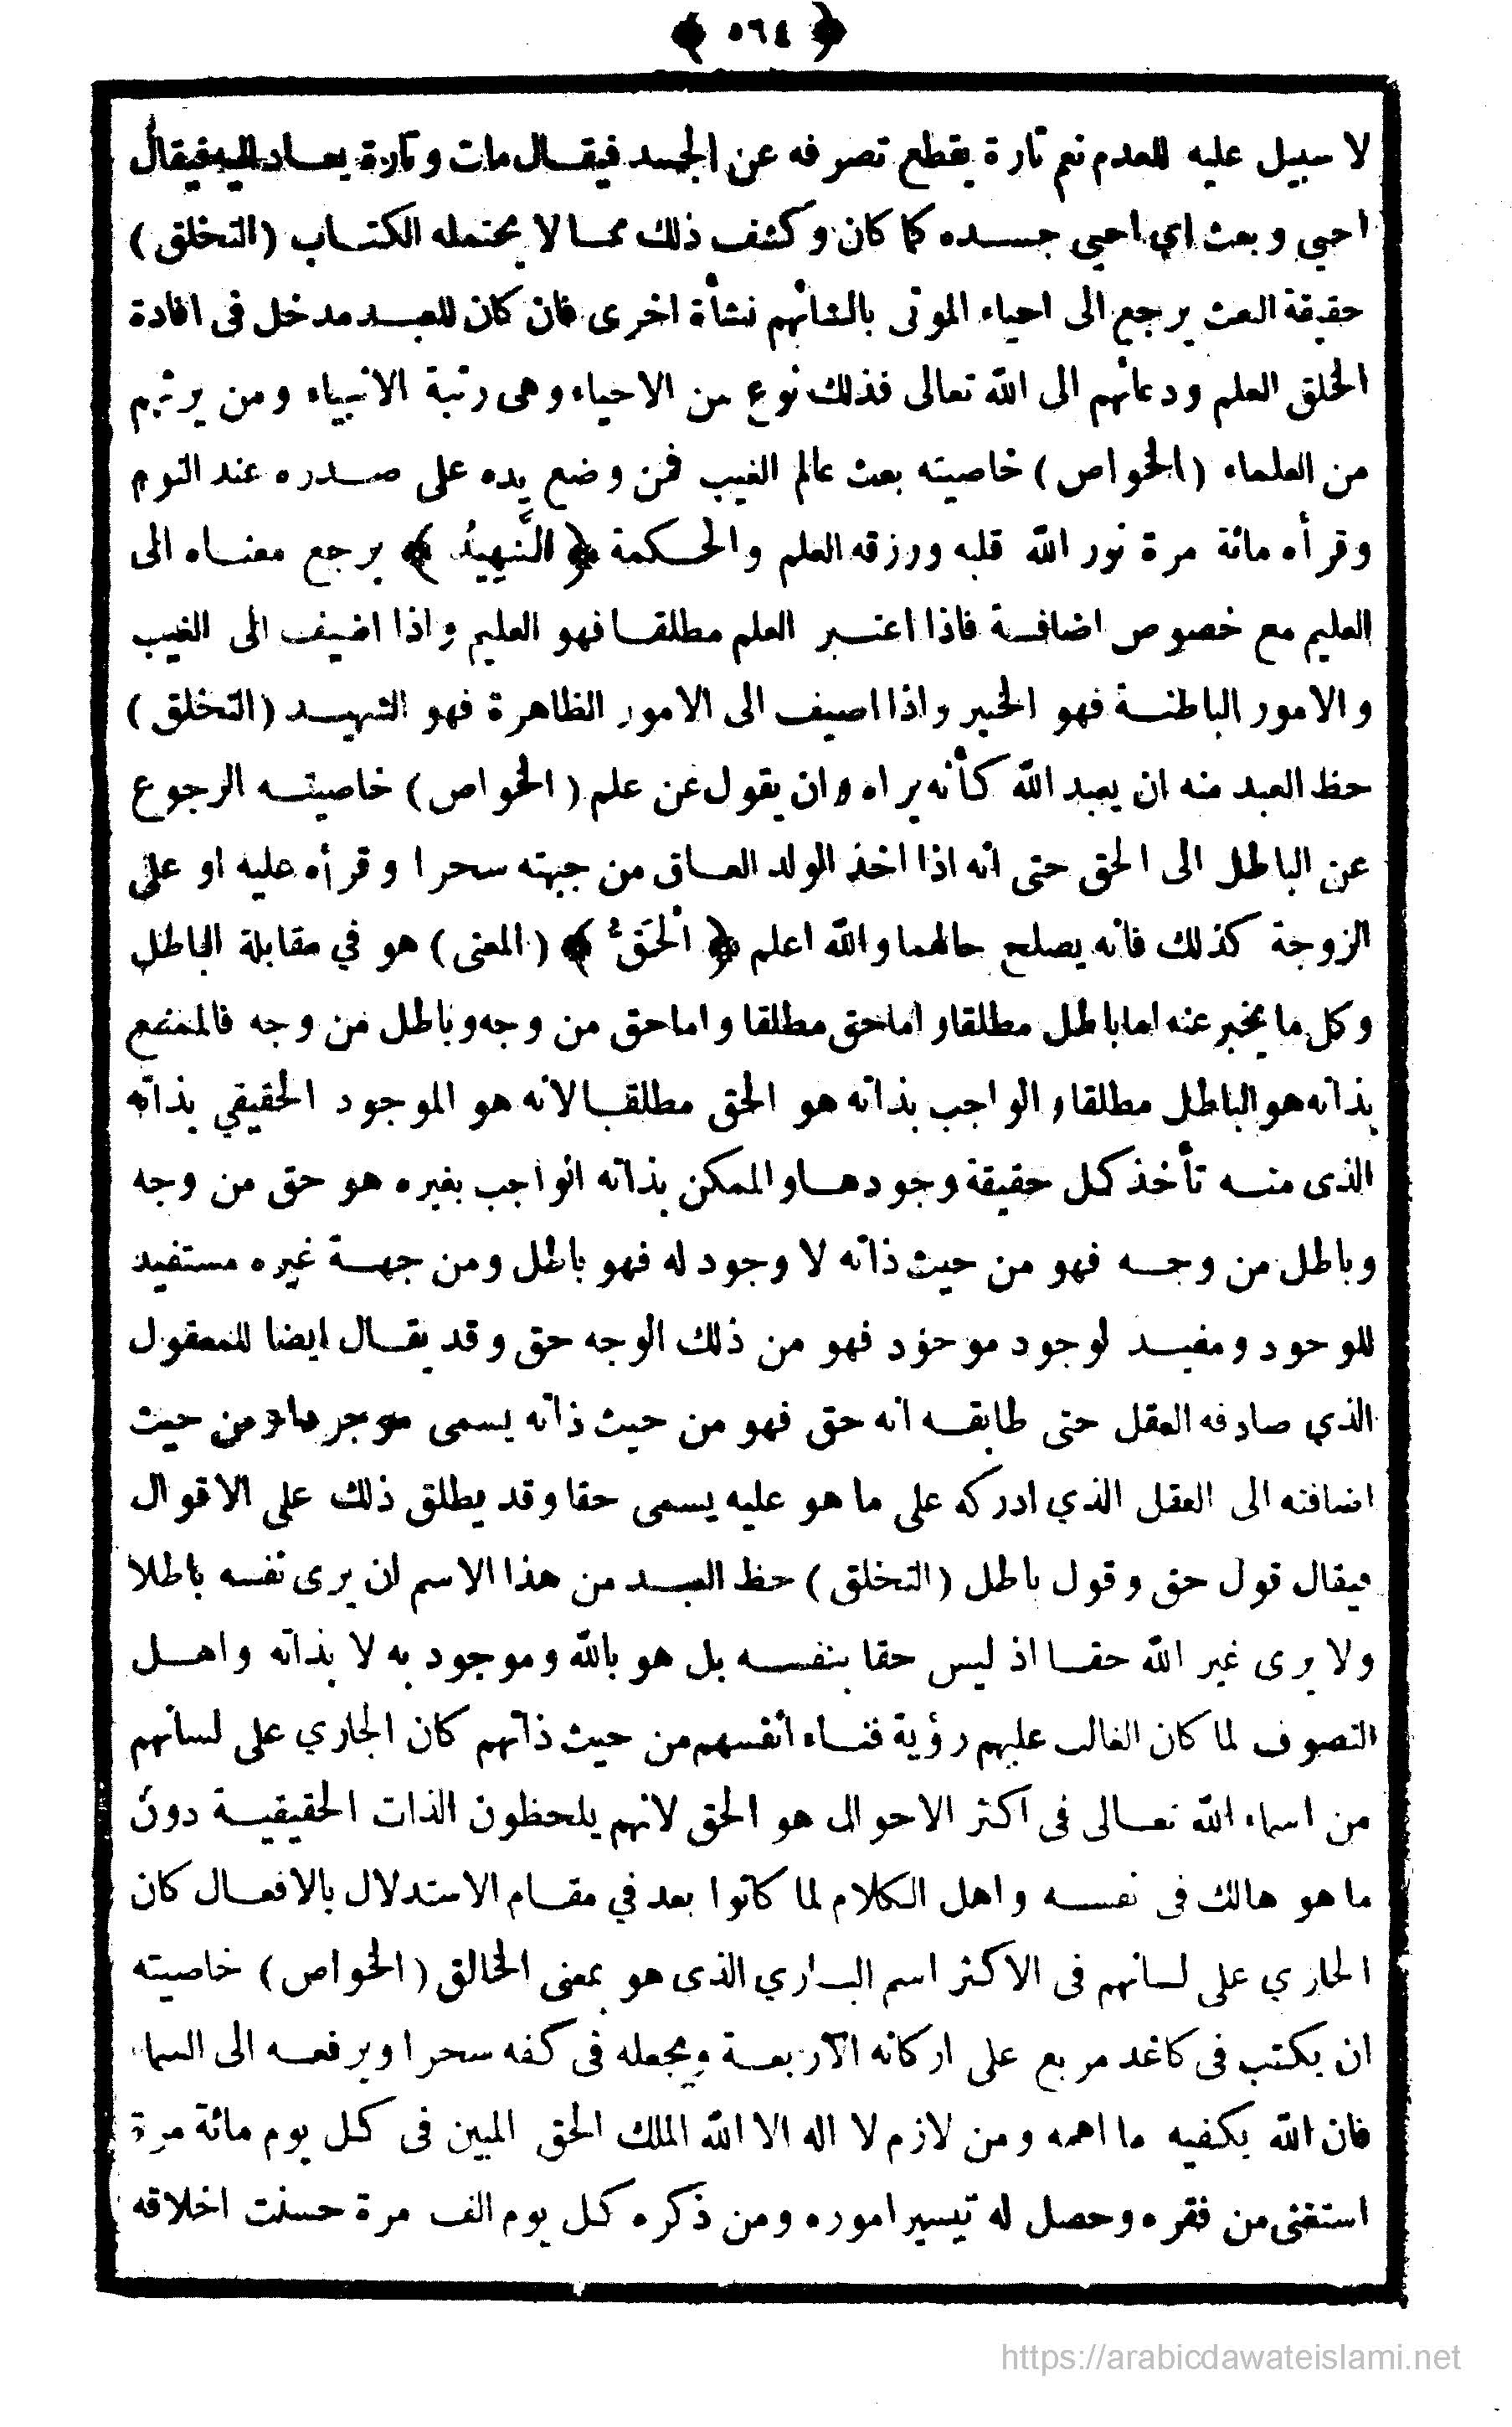 ﴿ ٥٦٤ ﴾
لا سبيل عليه للعدم نعم تارة يقطع تصرفه عن الجسد فيقال مات وتارة يعاد اليه فيقال
احيى وبعث اي احيى جسده كما كان وكشف ذلك مما لا يحتمله الكتاب (التخلق)
حقيقة البعث يرجع الى احياء الموتى بانشائهم نشأة اخرى فان كان للعبد مدخل فى افادة
الخلق العلم ودعائهم الى الله تعالى فذلك نوع من الاحياء وهى رتبة الانبياء ومن يرثهم
من العلماء (الخواص) خاصيته بعث عالم الغيب فمن وضع يده على صدره عند النوم
وقرأه مائة مرة نور الله قلبه ورزقه العلم والحكمة ﴿ الشَّهِيدُ ﴾ يرجع معناه الى
العليم مع خصوص اضافة فاذا اعتبر العلم مطلقا فهو العليم واذا اضيف الى الغيب
والامور الباطنة فهو الخبير واذا اضيف الى الامور الظاهرة فهو الشهيد (التخلق)
حظ العبد منه ان يعبد الله كأنه يراه وان يقول عن علم (الخواص) خاصيته الرجوع
عن الباطل الى الحق حتى انه اذا اخذ الولد العاق من جبهته سحرا وقرأه عليه او على
الزوجة كذلك فانه يصلح حالهما والله اعلم ﴿ الْحَقُّ ﴾ (المعنى) هو في مقابلة الباطل
وكل ما يخبر عنه اما باطل مطلقا واما حق مطلقا واما حق من وجه وباطل من وجه فالممتنع
بذاته هو الباطل مطلقا والواجب بذاته هو الحق مطلقا لانه هو الموجود الحقيقي بذاته
الذى منه تأخذ كل حقيقة وجودها والممكن بذاته الواجب بغيره هو حق من وجه
وباطل من وجه فهو من حيث ذاته لا وجود له فهو باطل ومن جهة غيره مستفيد
للوجود ومفيد لوجود موجود فهو من ذلك الوجه حق وقد يقال ايضا للمعقول
الذي صادفه العقل حتى طابقه انه حق فهو من حيث ذاته يسمى موجودا ومن حيث
اضافته الى العقل الذي ادركه على ما هو عليه يسمى حقا وقد يطلق ذلك على الاقوال
فيقال قول حق وقول باطل (التخلق) حظ العبد من هذا الاسم ان يرى نفسه باطلا
ولا يرى غير الله حقا اذ ليس حقا بنفسه بل هو بالله وموجود به لا بذاته واهل
التصوف لما كان الغالب عليهم رؤية فناء أنفسهم من حيث ذاتهم كان الجاري على لسانهم
من اسماء الله تعالى فى اكثر الاحوال هو الحق لانهم يلحظون الذات الحقيقية دون
ما هو هالك فى نفسه واهل الكلام لما كانوا بعد في مقام الاستدلال بالافعال كان
الجاري على لسانهم فى الاكثر اسم الباري الذى هو بمعنى الخالق (الخواص) خاصيته
ان يكتب فى كاغد مربع على اركانه الاربعة ويجعله فى كفه سحرا ويرفعه الى السماء
فان الله يكفيه ما اهمه ومن لازم لا اله الا الله الملك الحق المبين فى كل يوم مائة مرة
استغنى من فقره وحصل له تيسير اموره ومن ذكره كل يوم الف مرة حسنت اخلاقه
https://arabicdawateislami.net